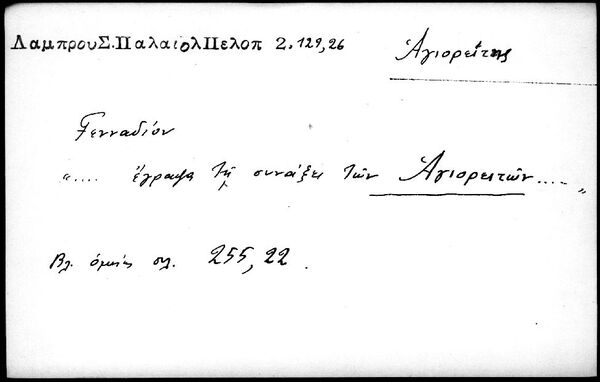 ΛαμπρουΣ.ΠαλαιολΠελοπ 2. 129,26
Ἁγιορείτης
Γενναδίον
„.... ἔγραψα τῇ συνάξει τῶν Ἁγιορειτῶν.... „
Βλ. ὁμοίως σελ. 255, 22.